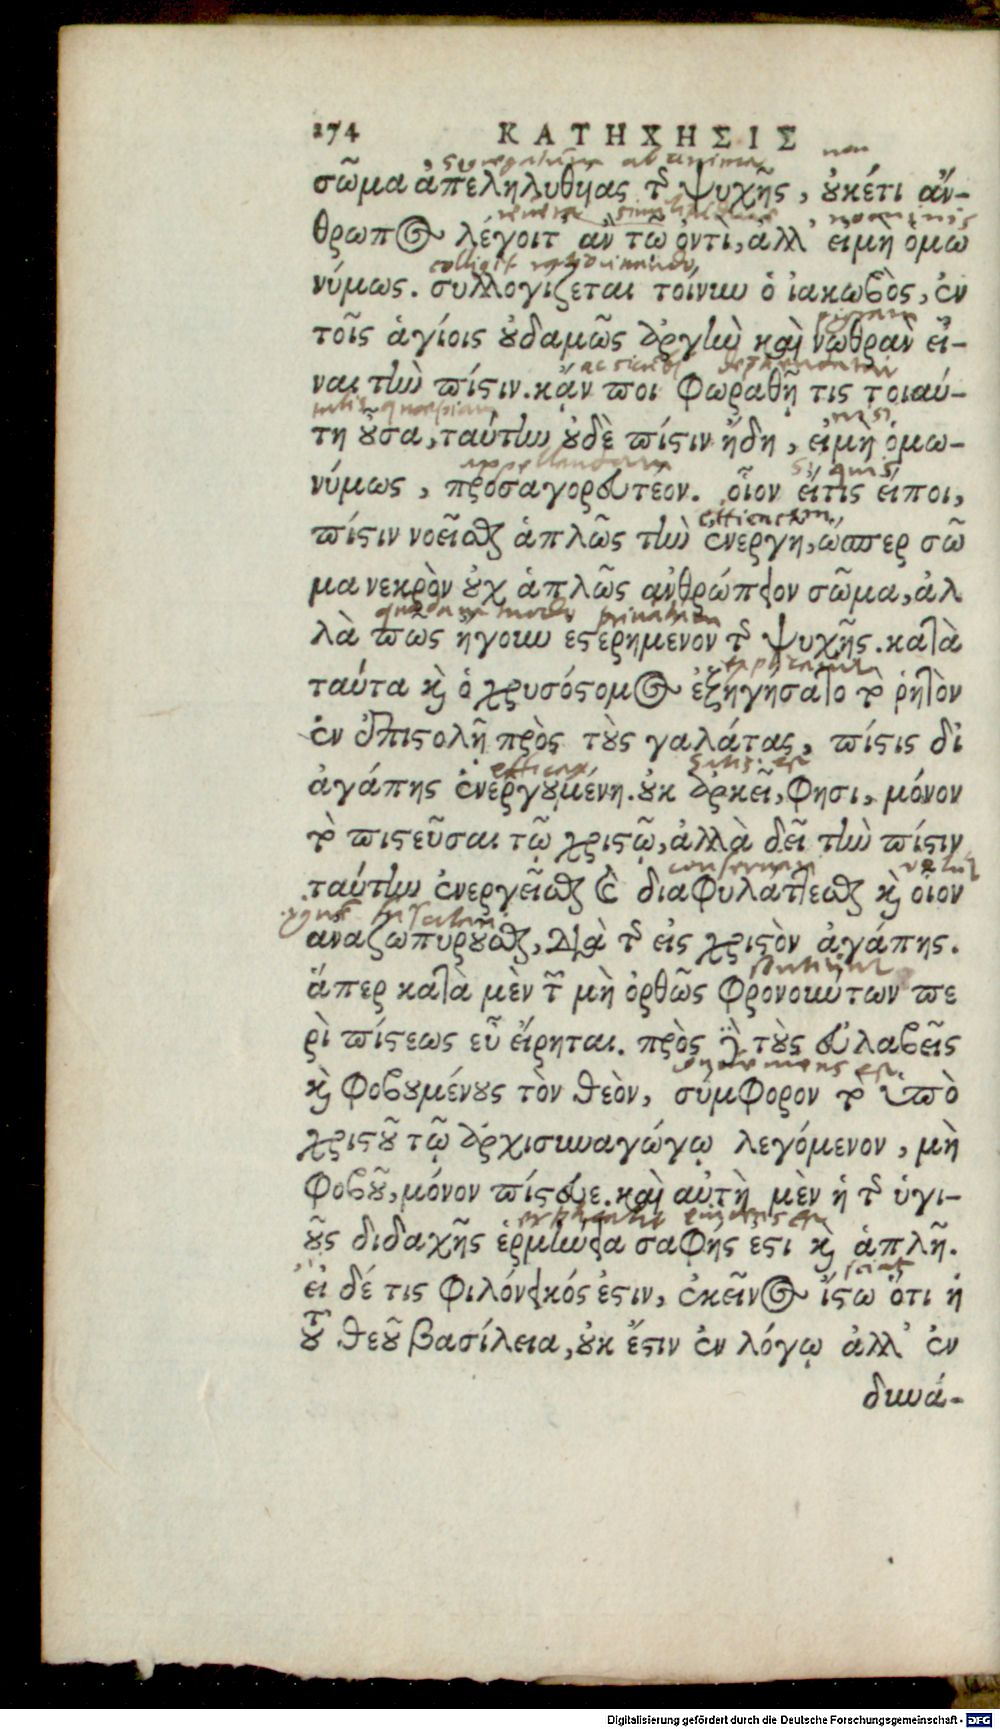 274 ΚΑΤΗΧΗΣΙΣ
σῶμα ἀπεληλυθυίας τῆς ψυχῆς, οὐκέτι ἄν-
θρωπος λέγοιτ' ἂν τῶ ὀντὶ, ἀλλ' εἰμὴ ὁμω
νύμως. συλλογίζεται τοίνυν ὁ ἰακωβὸς, ἐν
τοῖς ἁγίοις οὐδαμῶς ἀργὴν καὶ νωθρὰν εἶ-
ναι τὴν πίστιν. κᾄν ποι φωραθῇ τις τοιαύ-
τη οὖσα, ταύτην οὐδὲ πίστιν ἤδη, εἰμὴ ὁμω-
νύμως, προσαγορευτέον. οἷον εἴτις εἴποι,
πίστιν νοεῖσθαι ἁπλῶς τὴν ἐνεργῆ, ὥσπερ σῶ
μα νεκρὸν οὐχ ἁπλῶς ἀνθρώπειον σῶμα, ἀλ
λὰ πως ἤγουν ἐστερημένον τῆς ψυχῆς. κατὰ
ταύτα καὶ ὁ χρυσόστομος ἐξηγήσατο τὸ ῥητὸν
ἐν ἐπιστολῇ πρὸς τοὺς γαλάτας, πίστις δι
ἀγάπης ἐνεργουμένη. οὐκ ἀρκεῖ, φησι, μόνον
τὸ πιστεῦσαι τῷ χριστῷ, ἀλλὰ δεῖ τὴν πίστιν
ταύτην ἐνεργεῖσθαι καὶ διαφυλάττεσθαι καὶ οἷον
ἀναζωπυροῦσθαι, διὰ τῆς εἰς χριστὸν ἀγάπης.
ἅπερ κατὰ μὲν τῶν μὴ ὀρθῶς φρονούντων πε
ρὶ πίστεως εὖ εἴρηται. πρὸς δὲ τοὺς εὐλαβεῖς
καὶ φοβουμένους τὸν θεὸν, σύμφορον τὸ ὑπὸ
χριστοῦ τῷ ἀρχισυναγώγῳ λεγόμενον, μὴ
φοβοῦ, μόνον πίστευε. καὶ αὐτὴ μὲν ἡ τῆς ὑγι-
οῦς διδαχῆς ἑρμηνεία σαφής εστι καὶ ἁπλῆ.
εἰ δέ τις φιλόνεικός ἐστιν, ἐκεῖνος ἴστω ὅτι ἡ
τοῦ θεοῦ βασίλεια, οὐκ ἔστιν ἐν λόγῳ ἀλλ' ἐν
δυνά-
Digitalisierung gefördert durch die Deutsche Forschungsgemeinschaft - DFG